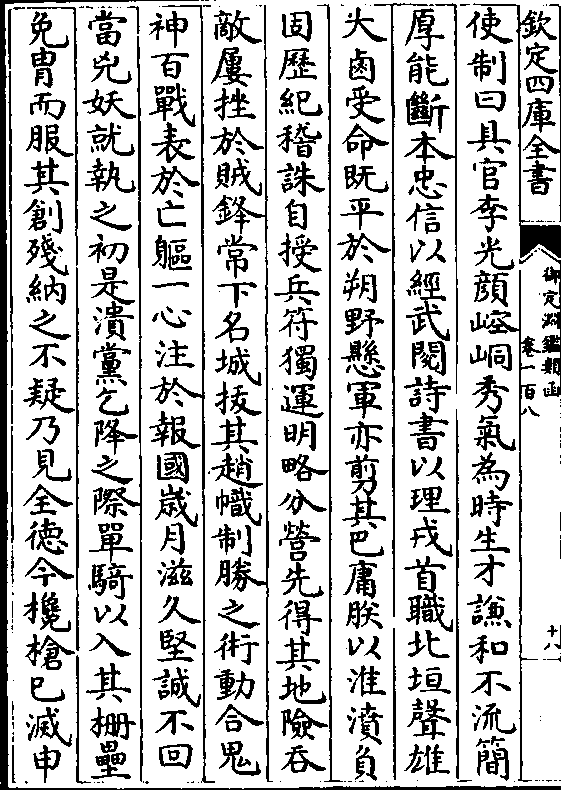 欽定四庫全書
御定淵鑑類函
卷一百八
十八
使制曰具官李光顔崆峒秀氣為時生才謙和不流簡
厚能斷本忠信以經武閱詩書以理戎首職北垣聲雄
大鹵受命既平於朔野懸軍亦剪其巴庸朕以淮濆負
固歷紀稽誅自授兵符獨運明略分營先得其地險吞
敵屢挫於賊鋒常下名城拔其趙幟制勝之術動合鬼
神百戰表於亡軀一心注於報國歲月滋久堅誠不回
當兇妖就執之初是潰黨乞降之際單騎以入其柵壘
免胄而服其創殘納之不疑乃見全德今欃槍已滅申